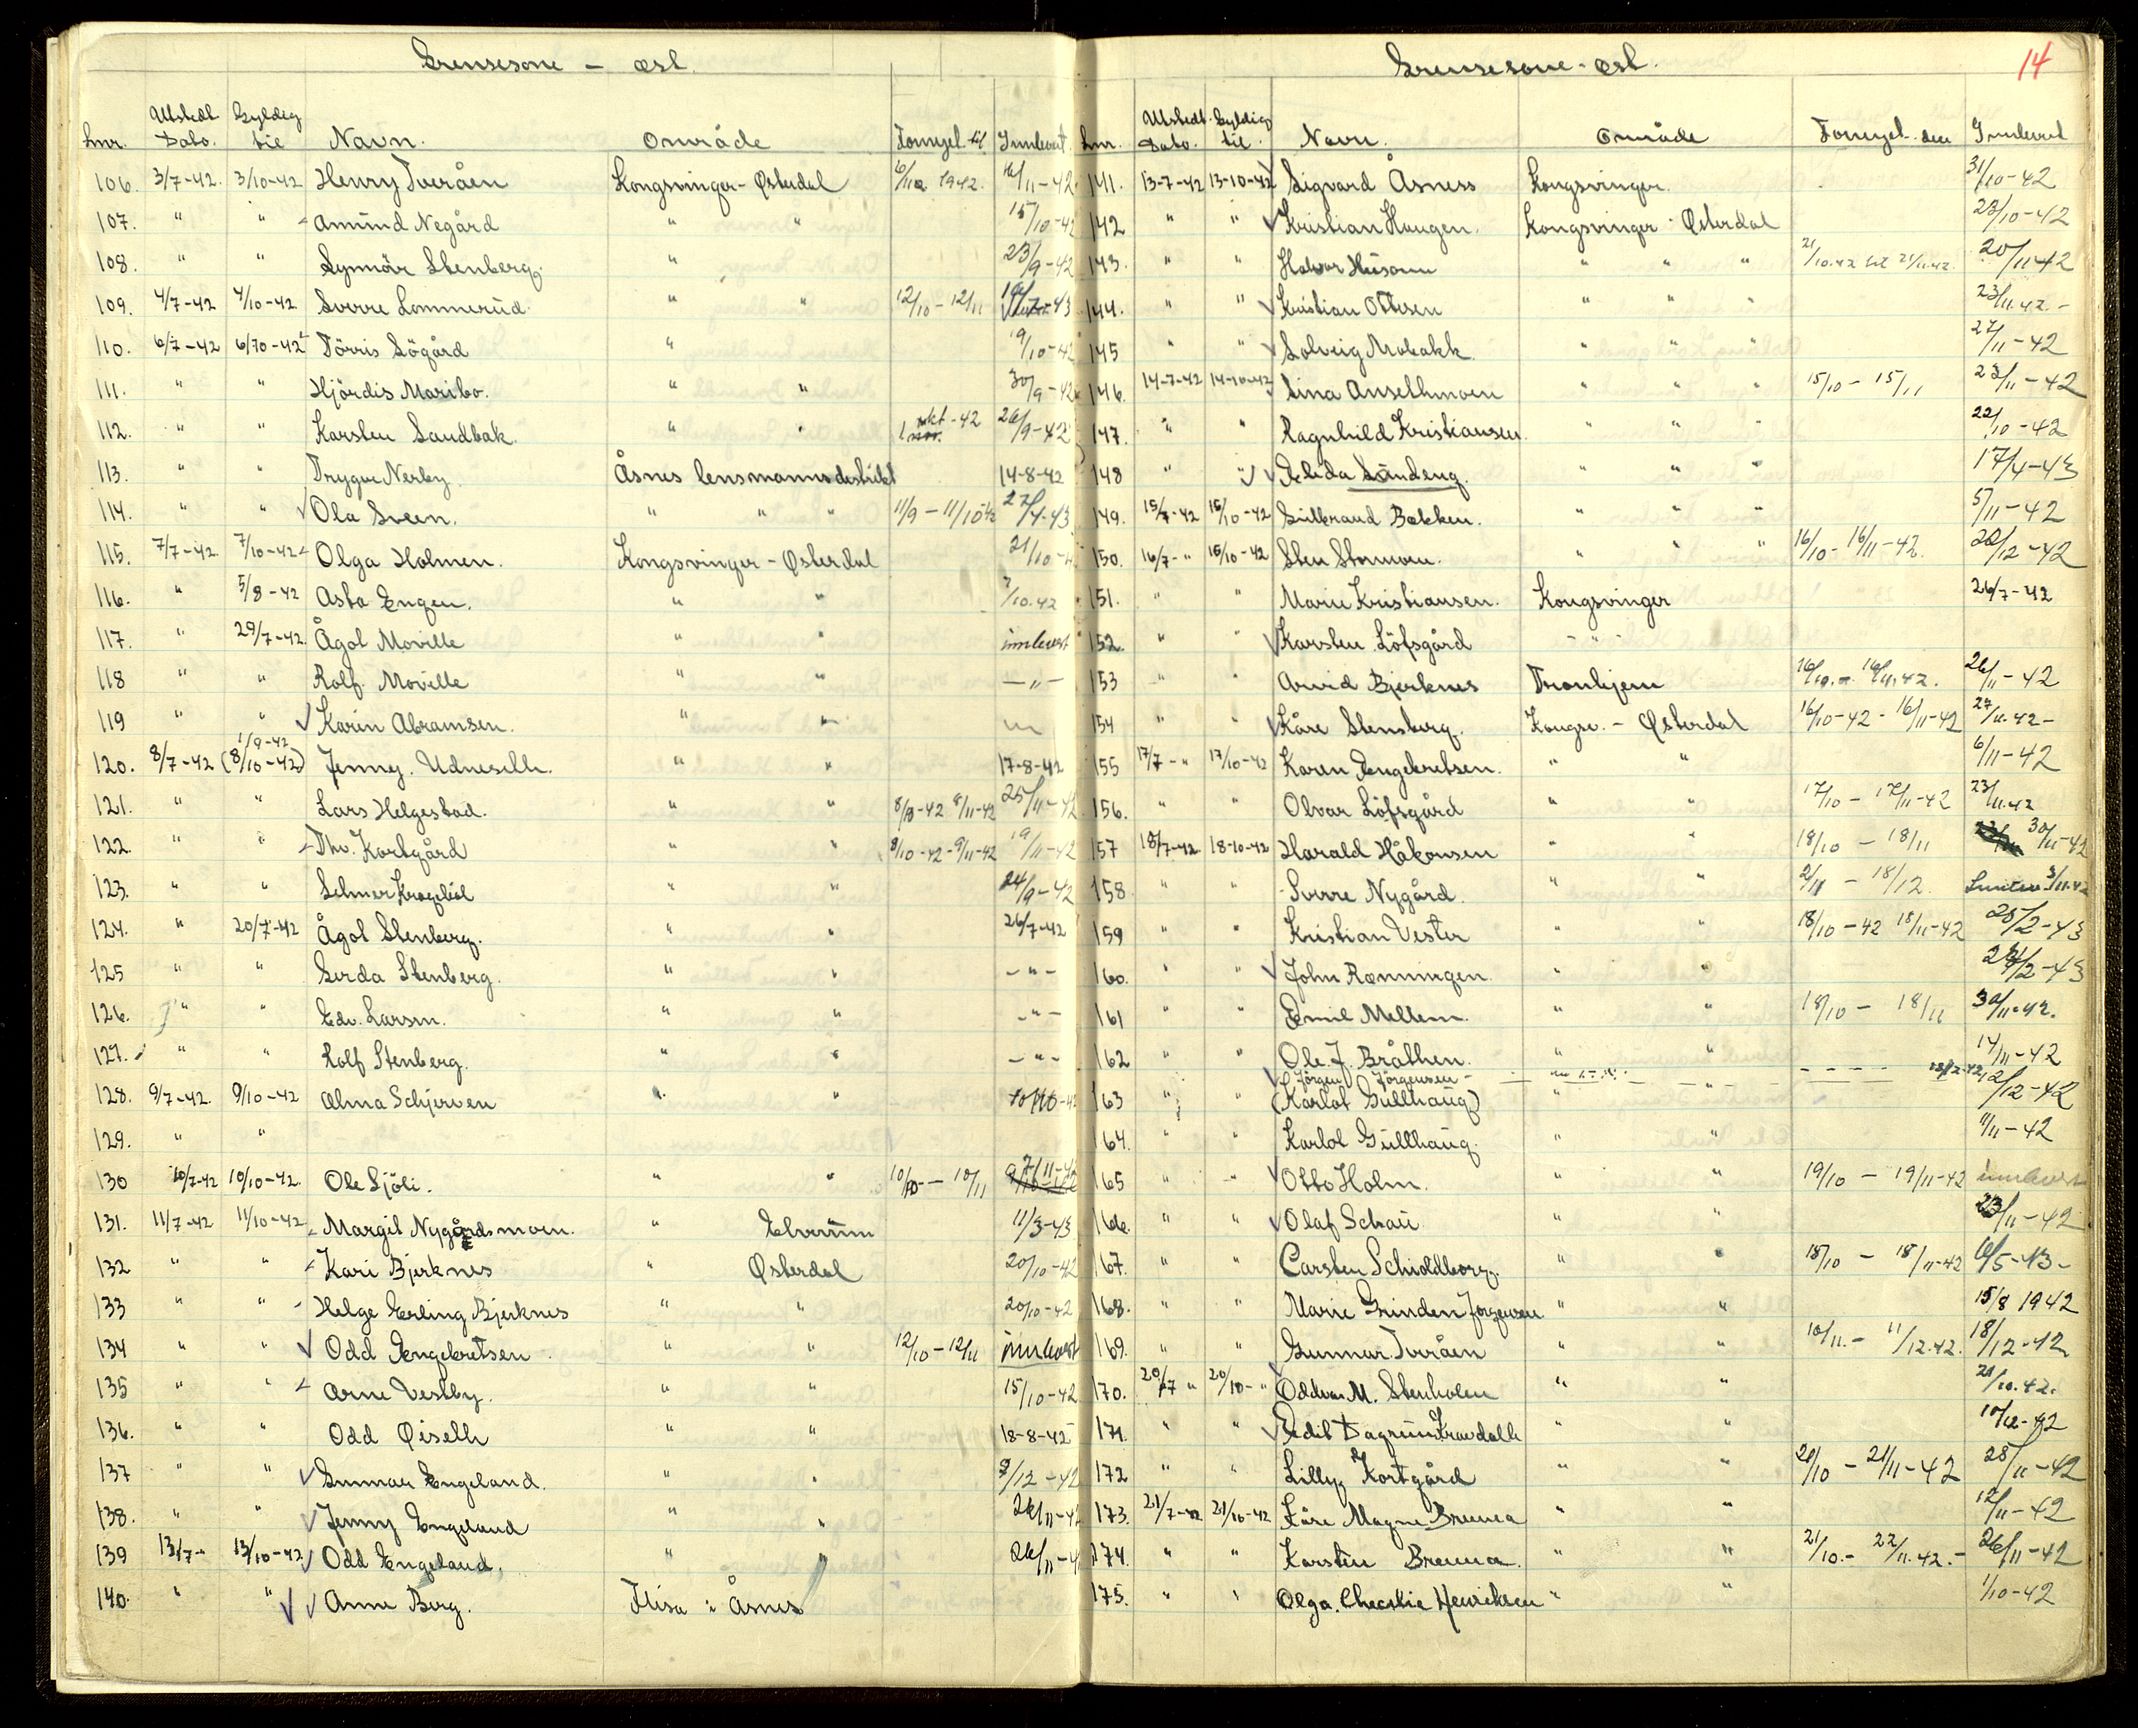 Grensesone – øst.
Lnr. Utstedt Dato. Gyldig til Navn. Område Fornyet til Innlevert.
106. 3/7-42. 3/10-42 Henry Tveråen Kongsvinger - Østerdal 1942. /11-42.
107. " " Amund Negård " " 15/10-42
108. " " Synnöv Stenberg. " 23/9-42
109. 4/7-42 4/10-42 Sverre Lommerud. " " 12/10-12/11
110. 6/7-42 6/10-42 Törris Sögård " 9/10-42
111. " " Hjördis Maribo. " " 30/9-42
112. " " Karsten Sandbak. " " 1 okt-42 26/9-42
113. " " Trygve Nerby. Åsnes lensmannsdistrikt 14-8-42
114. " " Ola Sveen. " " " 11/9-11/10-42 27/4-43
115. 7/7-42. 7/10-42 Olga Holmen. Kongsvinger - Østerdal 21/10-4
116. " 5/8-42 Asta Engen. " " 7/10.42
117. " 29/7-42. Ågot Moville " " innlevert
118 " " Rolf. Moville " " — " —
119 " " Karin Abramsen. " "
120. 8/7-42 1/9-42 (8/10-42) Jenny. Udneseth. " " 17-8-42
121. " " Lars Helgestad. " " 8/10-42 8/11-42 25/11-42
122. " " Thv. Kortgård " " 8/10-42-9/11-42 19/11-42
123. " " Selmer Krogebøl " " 24/9-42
124. " 20/7-42 Ågot Stenberg. " " 26/7-42
125 " " Gerda Stenberg. " " - " -
126. " " Edv. Larsen. " " - " -
127. " " Rolf Stenberg. " " - " -
128. 9/7-42. 9/10-42 Alma Schjerven " " 10/10-42
129. " "
130 10/7-42 10/10-42. Ole Sjöli. " " 10/10 — 10/11 7/11-42
131. 11/7-42 11/10-42 Margit Nygårdsmoen. " Elverum 11/3-43
132 " " Kari Bjerknes " Østerdal 20/10-42
133 " " Helge Erling Bjerknes " " 20/10-42
134 " " Odd Engebretsen. " " 12/10-12/11 innlevert
135 " " Arne Vestby. " " 15/10-42
136. " " Odd Øiseth " " 18-8-42
137 " " Gunnar Engeland. " " 9/12-42
138. " " Jenny Engeland " " 26/11-42
139 13/7- 13/10-42 Odd Engeland. " " 26/11-4
140. " " Anne Berg. Flisa i Åsnes
Grensesone - øst.
14
Lnr. Utstedt Dato. Gyldig til. Navn. Område Fornyet den Innlevert
141. 13-7-42 13-10-42 Sigvard Åsness Kongsvinger. 31/10-42
142 " " Kristian Haugen. Kongsvinger - Østerdal 23/10-42
143. " " Halvor Husom " " " 21/10.42 til 21/11.42. 20/11 42
144. " " Kristian Ottesen " " " 23/11.42.-
145 " " Solveig Mobakk. " " 27/11-42
146. 14-7-42 14-10-42 Lina Ansethmoen " " " 15/10-15/11 23/11-42
147. " " Ragnhild Kristiansen " " " 22/10-42
148 " " Elida Sandeng. " " " 17/4-43
149. 15/7-42 15/10-42 Gulbrand Bakken. " " 5/11-42
150. 16/7-" 15/10-42 Sten Stormoen. " " " 16/10-16/11-42. 20/12-42
151. " " Marie Kristiansen. Kongsvinger 26/7-42
152. " " Karsten Löfsgård - " -
153 " " Arvid Bjerknes Tronhjem 16/10.-16/11.42. 26/11-42
154 " " Kåre Stensberg. Kongsv. - Østerdal 16/10-42-16/11-42 27/11.42-
155 17/7-" 17/10-42 Karen Engebretsen. " " 6/11-42
156. " " Olvar Löfsgård " " 17/10-17/11-42 23/11.42
157 18/7-42. 18-10-42 Harald Håkonsen " " 18/10-18/11 30/11-42
158. " " Sverre Nygård. " " 2/11-18/12. 3/11.42
159 " " Kristian Vester " " 18/10-42 18/11-42 25/2-43
160. " " John Rønningen " " 24/2-43
161 " " Emil Mellem. " " 18/10-18/11 30/11-42.
162 " " Ole. J. Bråthen. " " 14/11-42
163 " " Jörgen Jörgensen - (Karlot Gullhaug) " " 12/12-42
164. " " Karlot Gullhaug. " " 11/11-42
165 " " Otto Holm. " " 19/10-19/11-42 innlevert
166. " " Olaf Schau " " 23/11-42
167. " " Carsten Schioldborg. " " 18/10-18/11-42 6/5-43-
168. " " Marie Grinden Jørgensen " " 15/8 1942
169. " " Gunnar. Tveråen " " 10/11.-11/12.42. 18/12-42
170. 20/7 " 20/10-" Oddvar M. Stenholen " " 21/10.42.
171. " " Edit Dagrun Kravdalh " " 10/12-42
172 " " Lilly Kortgård " " 20/10-21/11-42 28/11-42
173. 21/7-42 21/10-42 Kåre Magne Brenna " " 12/11-42
174. " " Karsten Brenna. " " 21/10.-22/11.42.- 26/11-42
175. " " Olga. Checilie Henriksen " " 1/10-42